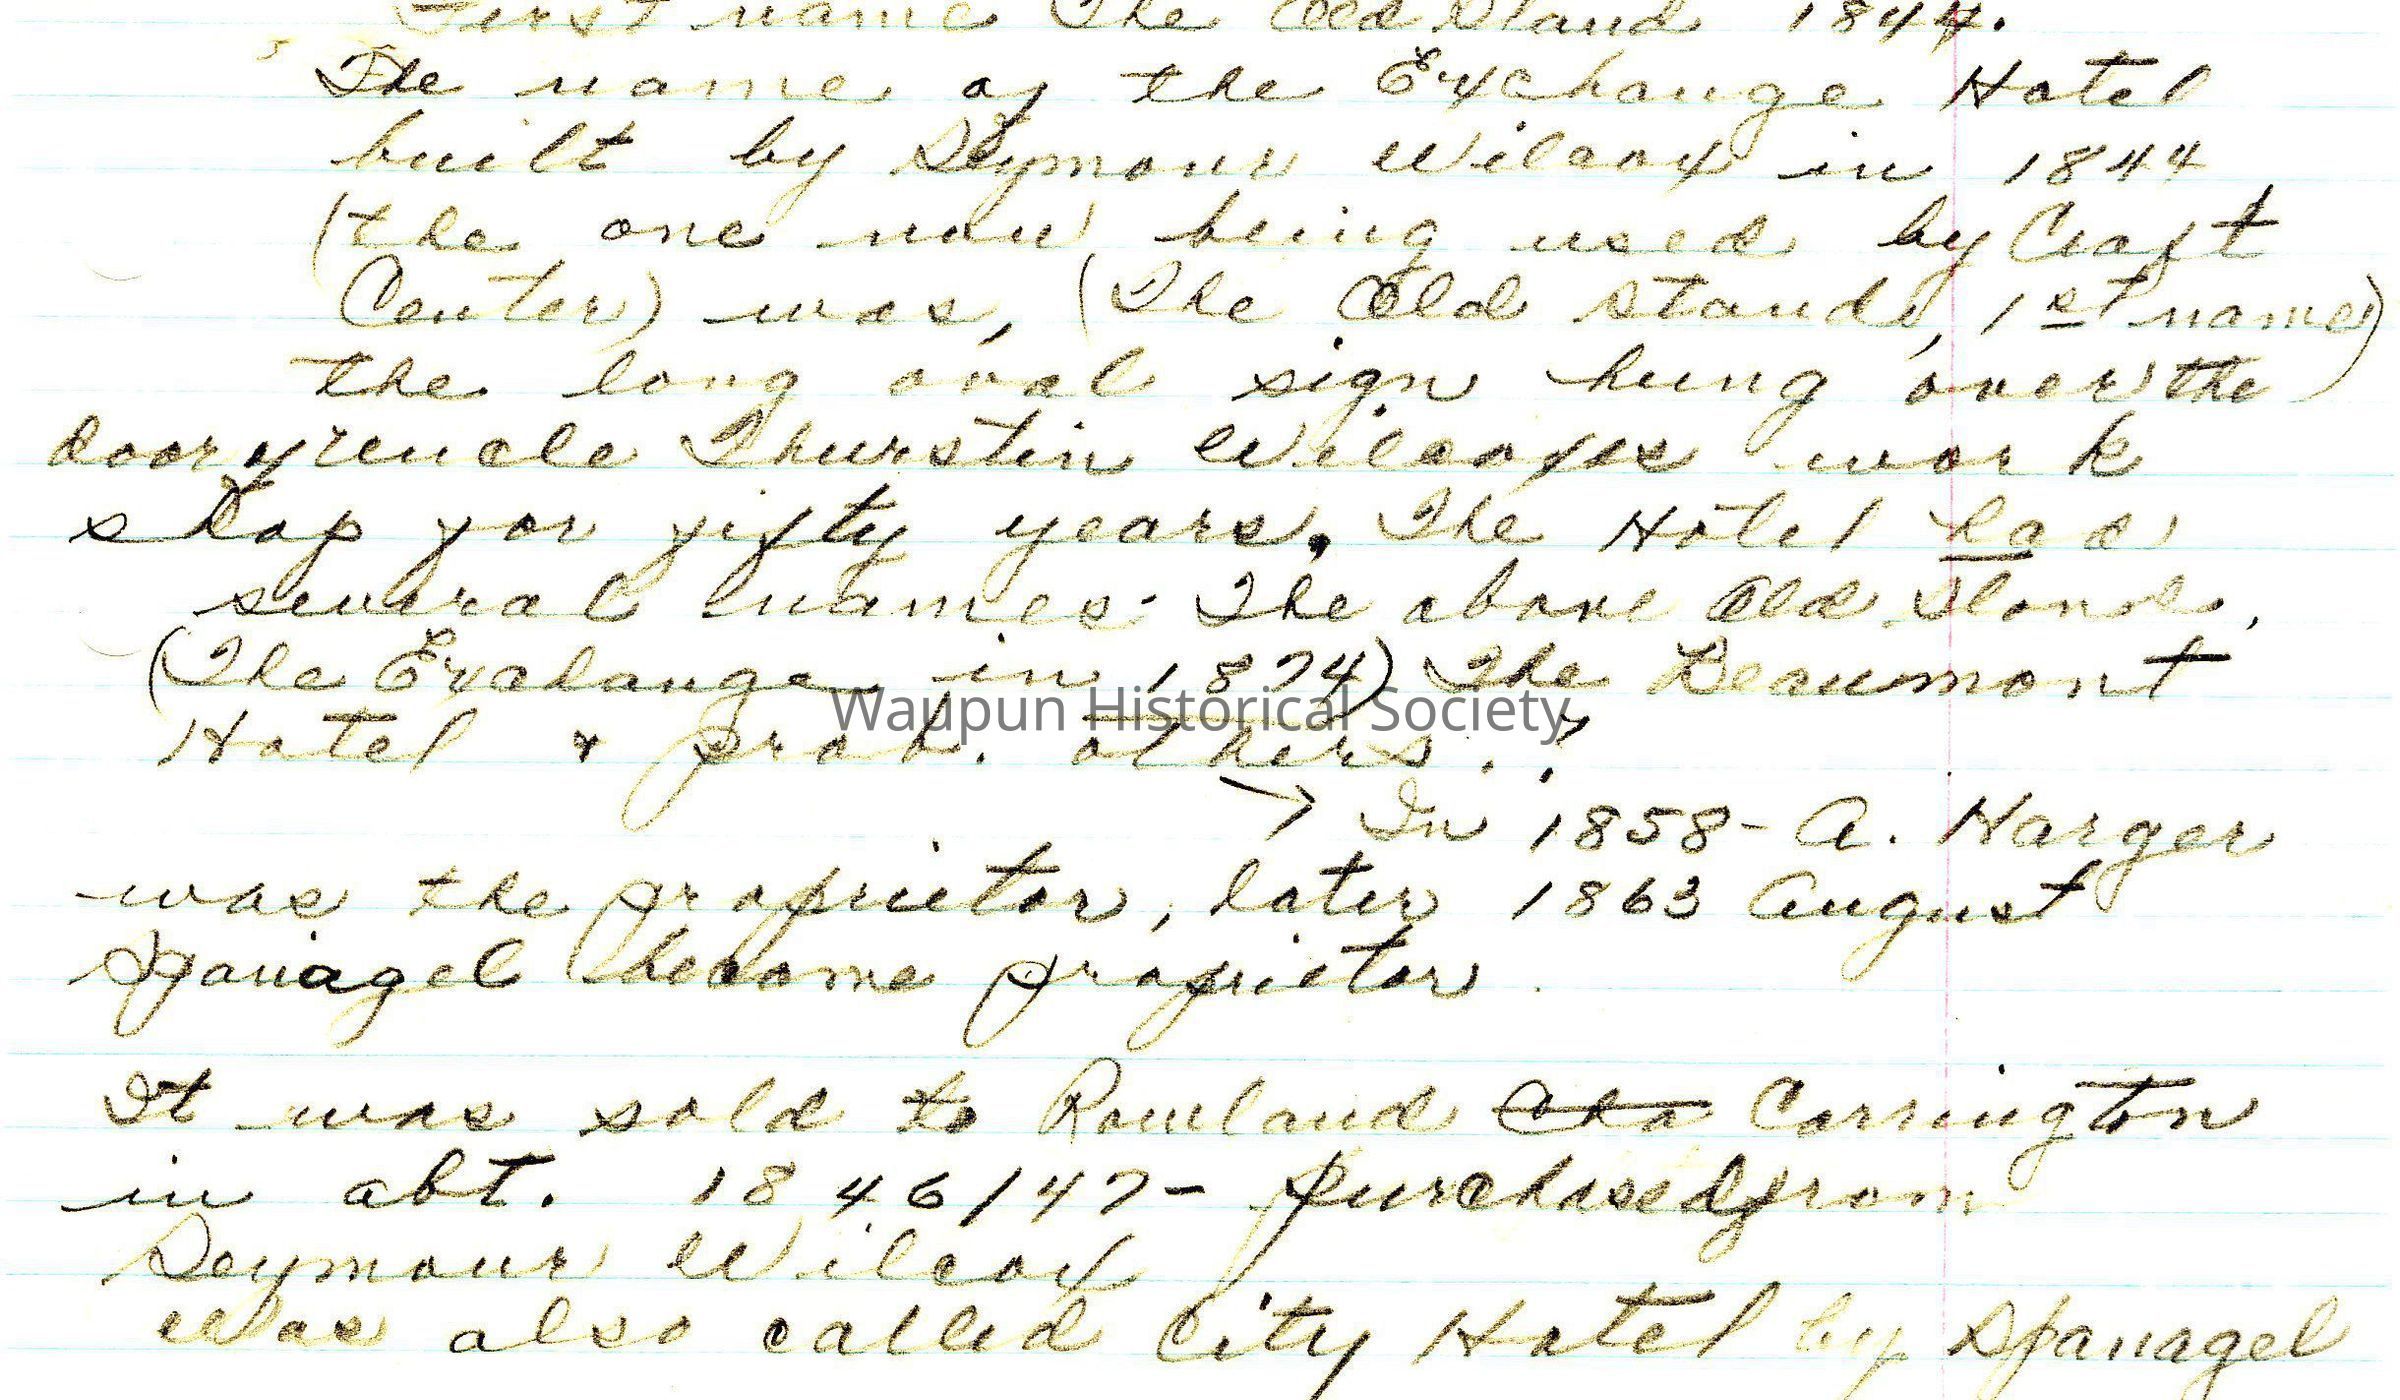 First name The Old Stand 1844.
The name of the Exchange Hotel
built by Seymour Wilcox in 1844
(the one now being used by Craft
Center) was, (The Old Stand, 1st name)
the long oval sign hung over the
door of uncle Thurstin Wilcoxes work
shop for fifty years. The Hotel had
several names. The above Old Stand,
(The Exchange in 1874) The Beaumont
Hotel & prob. others..?
→ In 1858 - A. Harger
was the proprietor, later 1863 August
Spanagel became proprietor.
It was sold to Rowland Cha Carrington
in abt. 1846/47 - purchased from
Seymour Wilcox
Was also called City Hotel by Spanagel
Waupun Historical Society